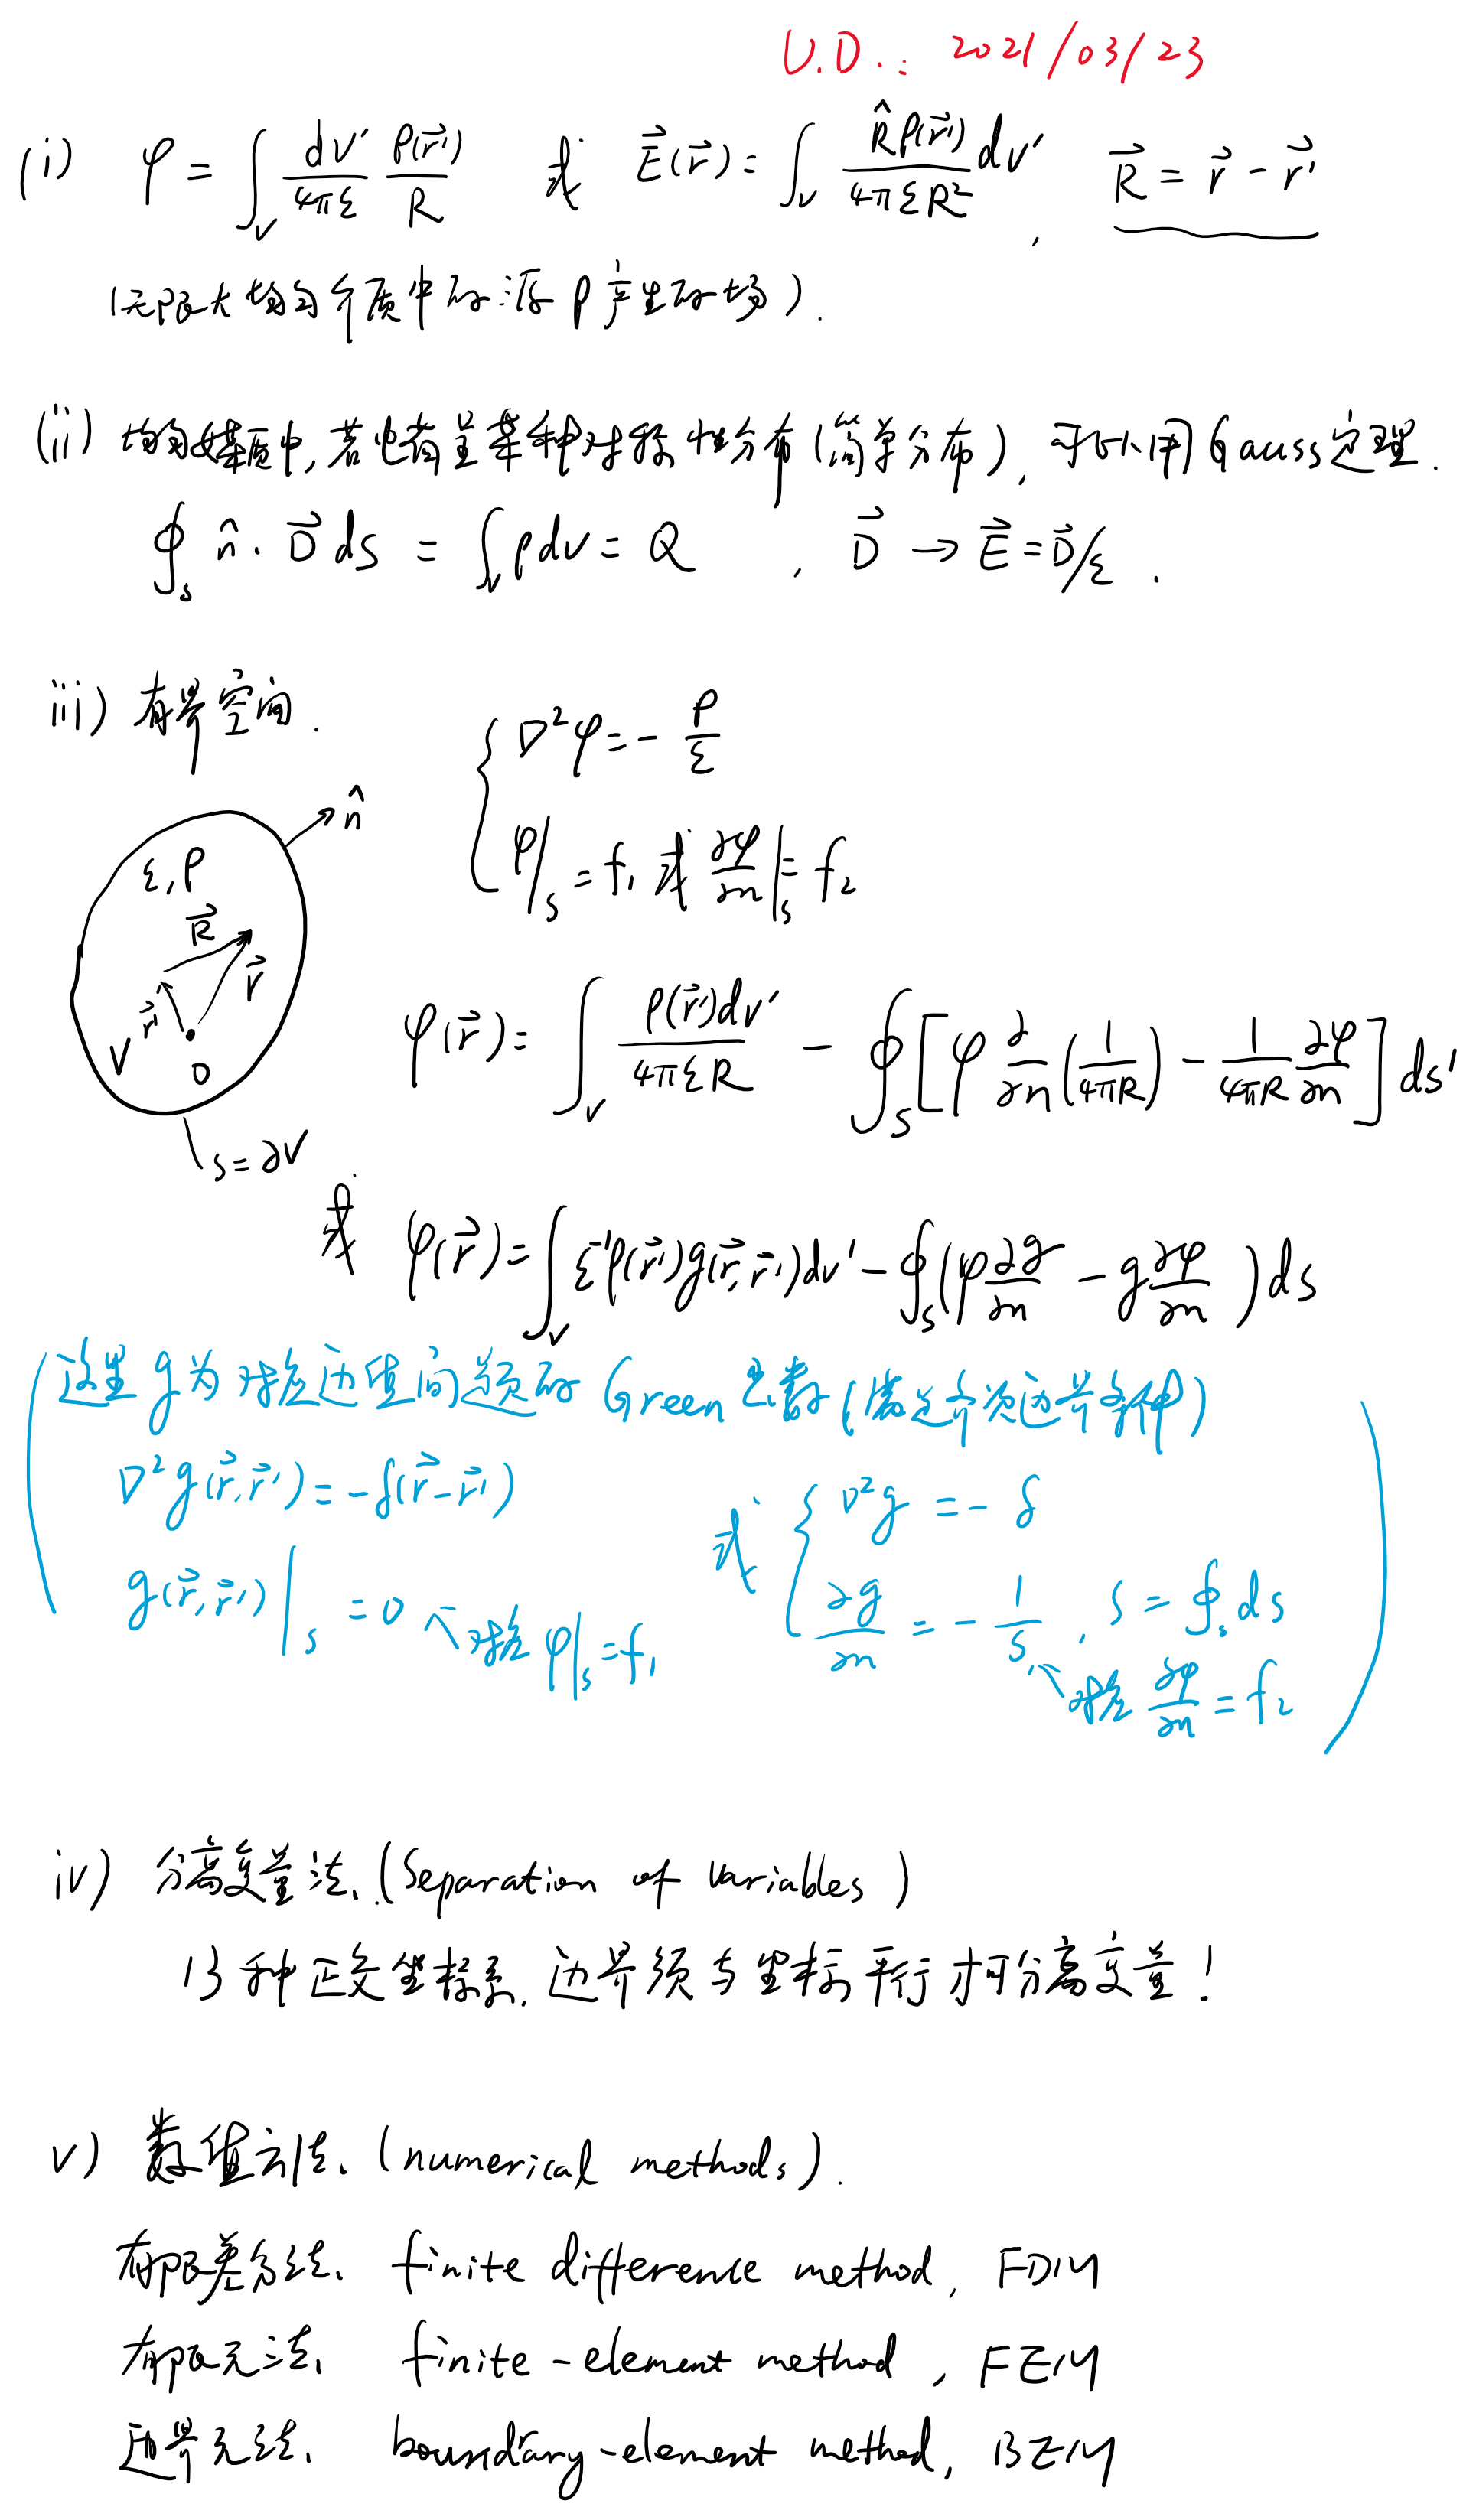 U.D.: 2021/03/23
(i) φ = ∫_V dV'/4πε ρ(r⃗')/R 或 E⃗(r⃗) = ∫_V R̂ρ(r⃗')dV'/4πεR², R⃗ = r⃗ - r⃗'
(无限大均匀介质中源ρ产生的场).
(ii) 均匀介质中, 若电荷是某种对称分布(源分布), 可以利用Gauss定理.
∮_S n̂·D⃗ds = ∫_V ρdv = Q, D⃗ → E⃗ = D⃗/ε.
iii) 有界空间.
∇²φ = -ρ/ε
φ|_S = f₁ 或 ∂φ/∂n|_S = f₂
n̂
ε,ρ
R⃗
r⃗
r⃗'
V
O
S=∂V
φ(r⃗) = ∫_V ρ(r⃗')dV'/4πεR - ∮_S [φ ∂/∂n(1/4πR) - 1/4πR ∂φ/∂n] ds'
或 φ(r⃗) = ∫_V ε⁻¹ρ(r⃗')g(r⃗,r⃗')dv' - ∮_S(φ ∂g/∂n - g ∂φ/∂n)ds
(这里g为对应边界问题的Green函数
∇²g(r⃗,r⃗') = -δ(r⃗-r⃗')
g(r⃗,r⃗')|_S = 0 对应 φ|_S = f₁
或 { ∇²g = -δ
∂g/∂n = -1/S, S = ∮_S ds
对应 ∂φ/∂n = f₂ )
iv) 分离变量法.(Separation of Variables)
11种正交坐标系. 边界须与坐标面平行才可分离变量!
v) 数值方法. (numerical methods).
有限差分法. finite difference method, FDM
有限元法. finite-element method, FEM
边界元法. boundary-element method, BEM